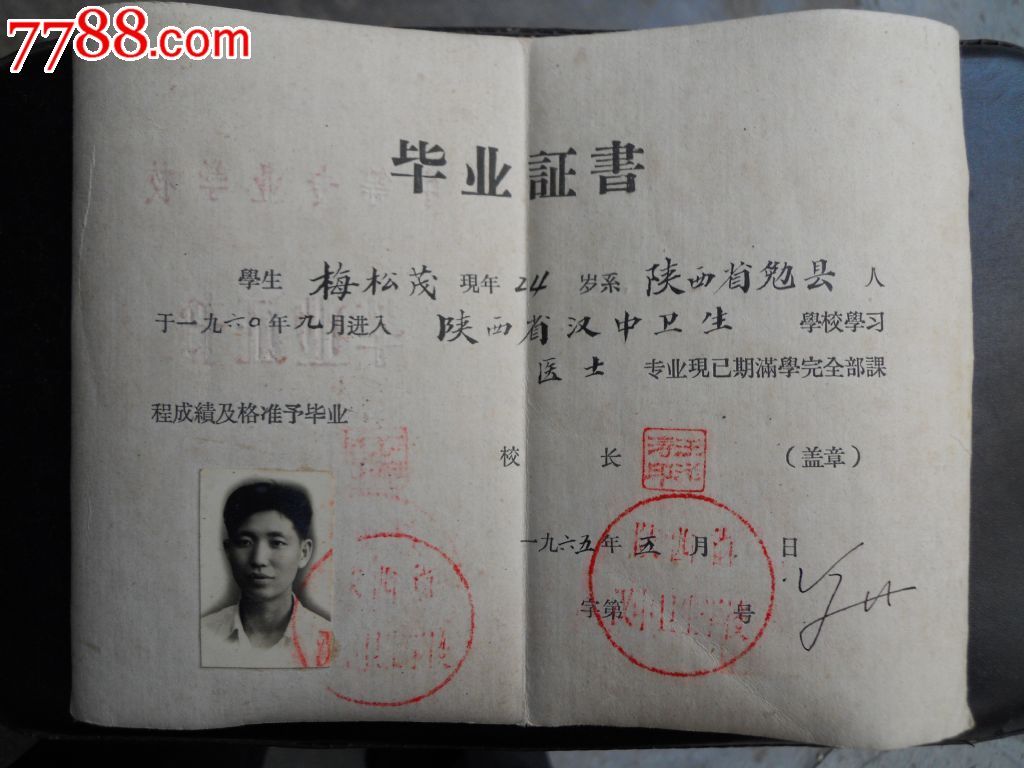 7788.com
毕业証書
學生 梅松茂 現年 24 岁系 陕西省勉县 人
于一九六〇年九月进入 陕西省汉中卫生 學校學习
医士 专业現已期滿學完全部課
程成績及格准予毕业
校 长 (盖章)
一九六五年 五 月 日
字第 号